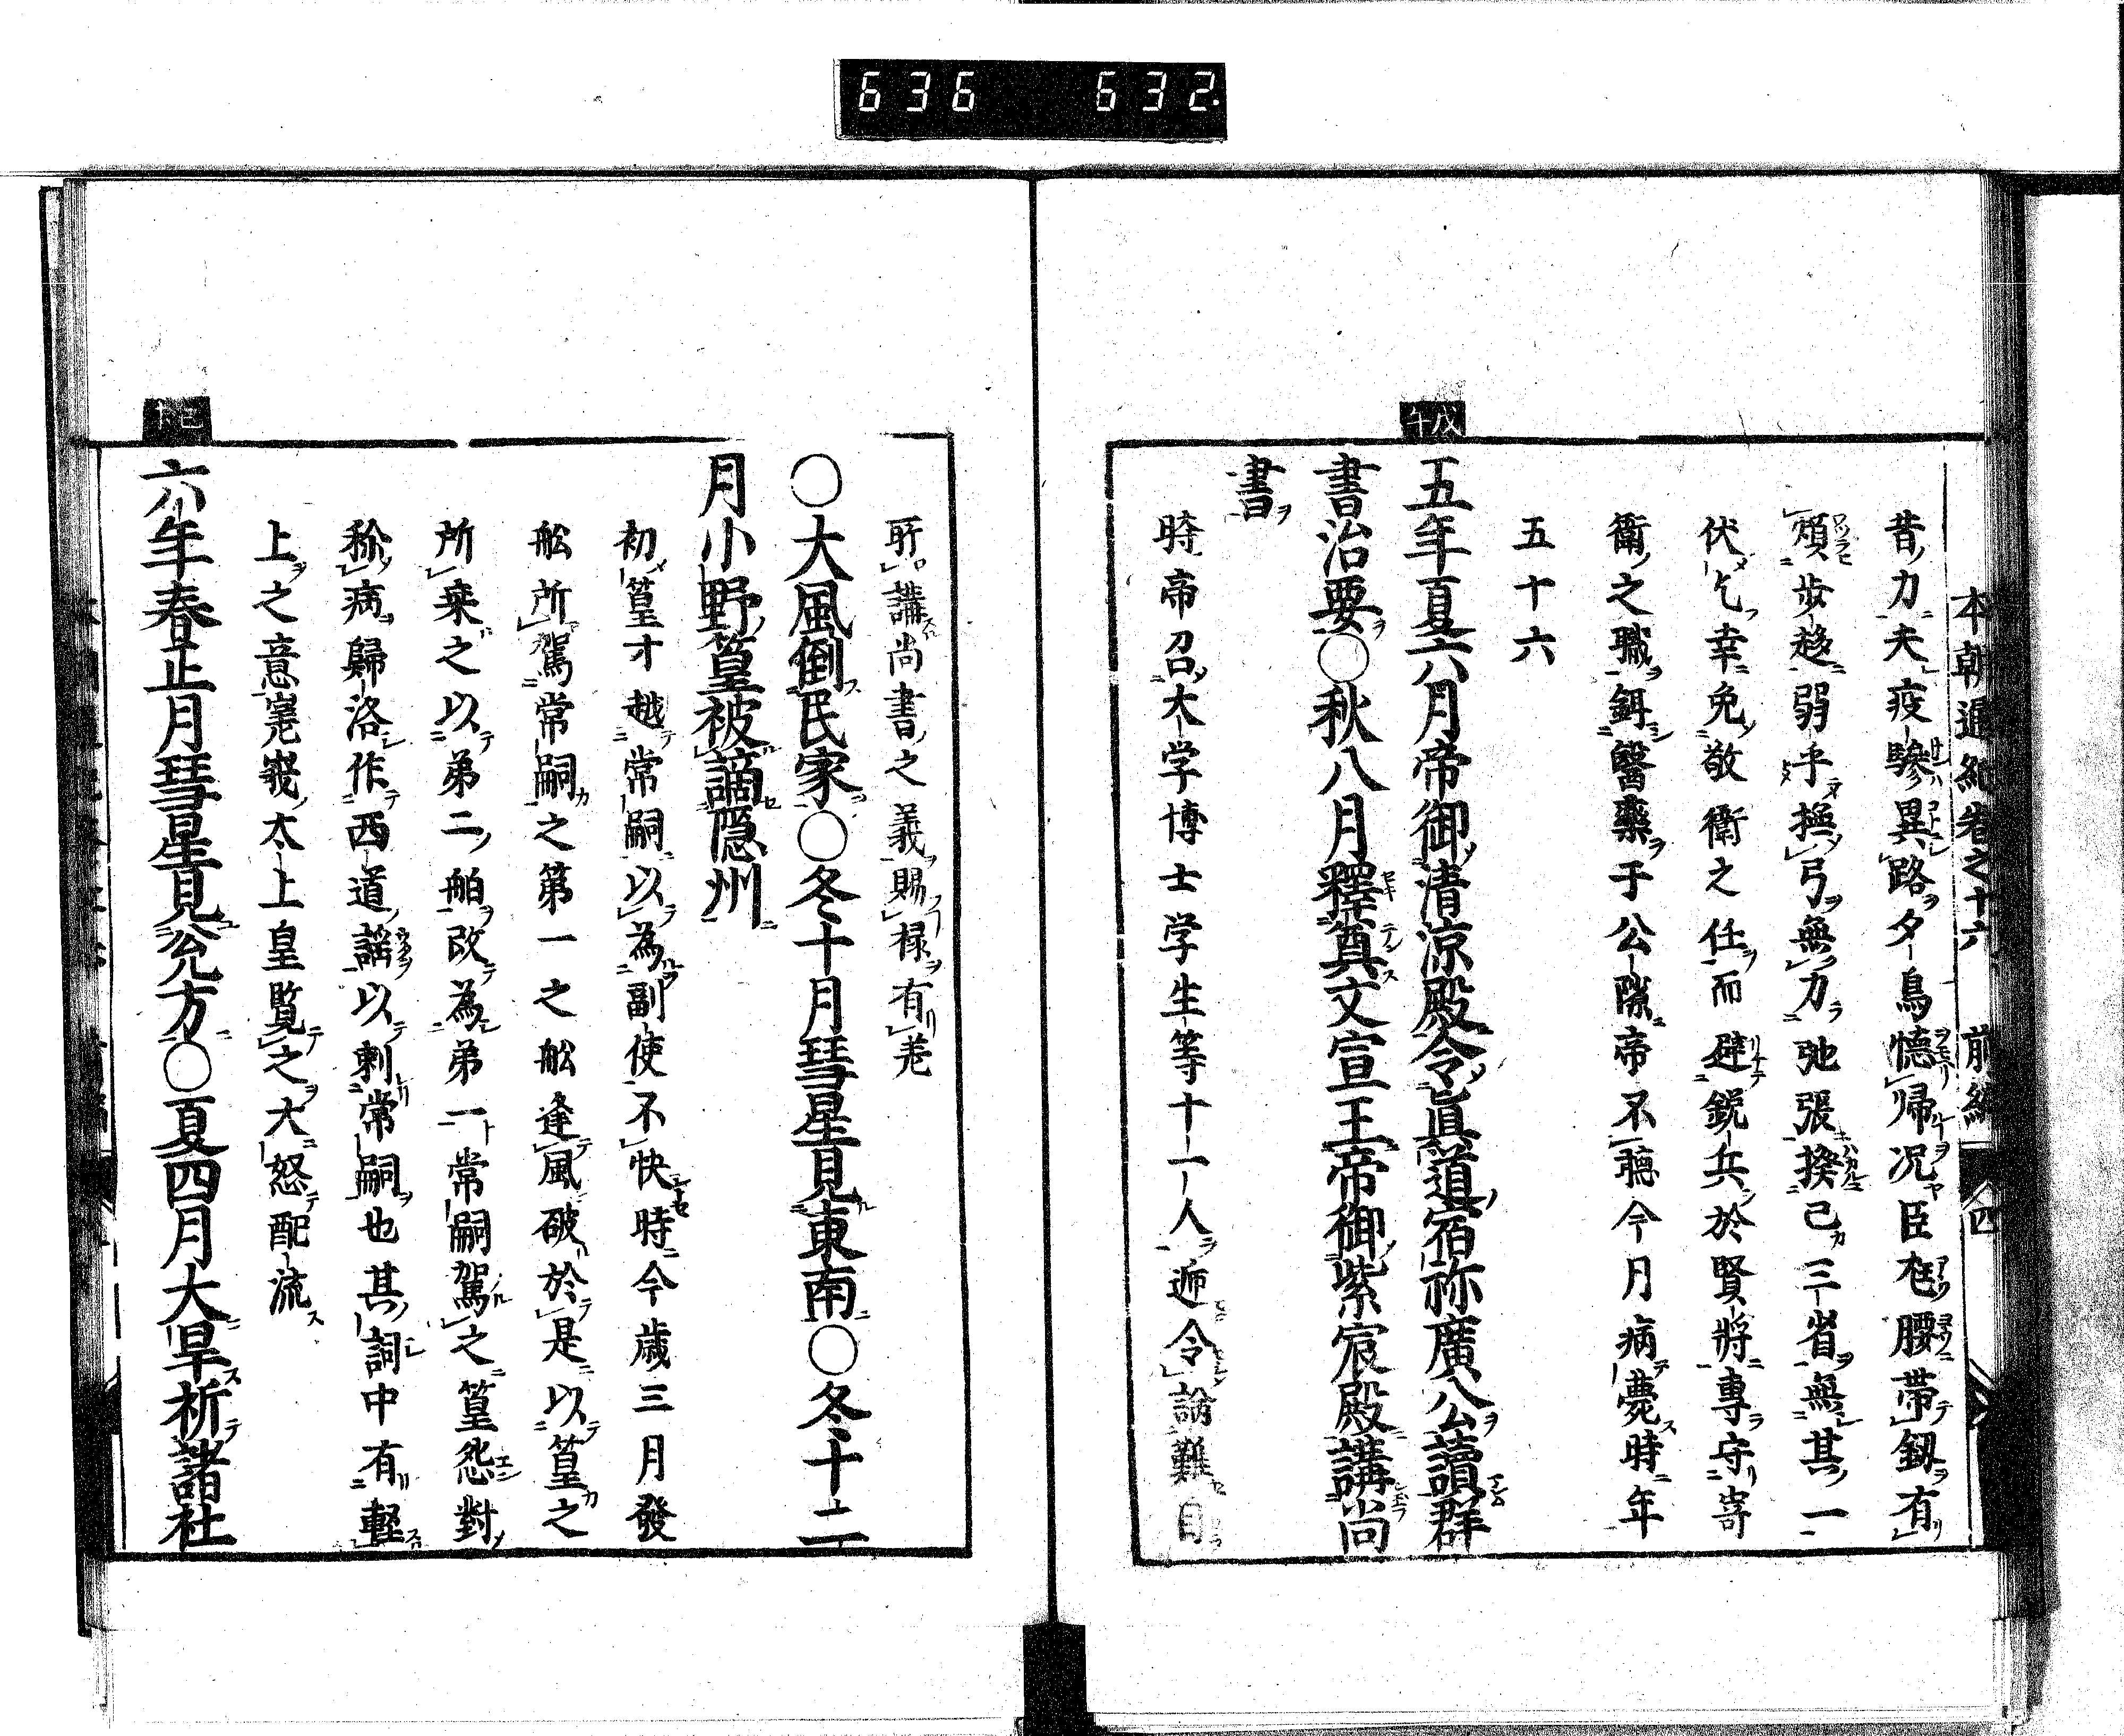 636 632.
本朝通紀卷之十六 前編 四
昔力夫疫驂異路夕鳥憶帰況臣尫腰帶釼有
煩步趍弱乎撫弓無力弛張揆己三省無其一
伏乞幸免敬衛之任而避銳兵於賢將專守寄
衛之職餌醫藥于公隙帝不聽今月病薨時年
五十六
戊午
五年夏六月帝御清涼殿令眞道宿祢廣公讀群
書治要〇秋八月釋奠文宣王帝御紫宸殿講尚
書
時帝召大学博士学生等十一人遞令論難自
所講尚書之義賜禄有差
〇大風倒民家〇冬十月彗星見東南〇冬十二
月小野篁被謫隠州
初篁才越常嗣以為副使不快時今歳三月發
舩所駕常嗣之第一之舩逢風破於是以篁之
所乗之以第二舶改為第一常嗣駕之篁怨對
称病歸洛作西道謡以刺常嗣也其詞中有軽
上之意嵯峨太上皇覧之大怒配流
己未
六年春正月彗星見兊方〇夏四月大旱祈諸社